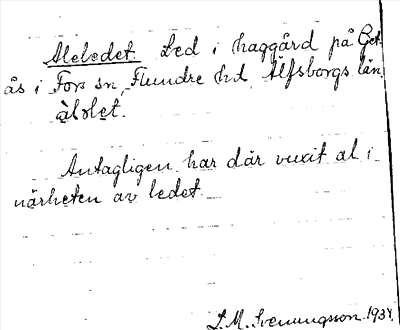 Aleledet. Led i haggård på Get-
ås i Fors sn, Flundre hd, Älfsborgs län
Antagligen har där vuxit al i
närheten av ledet
L. M. Svenungsson 1934.